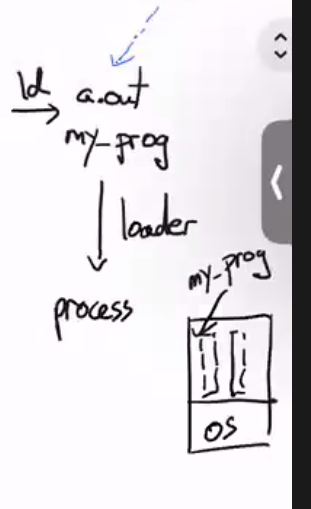 ld
a.out
my-prog
loader
process
my-prog
OS